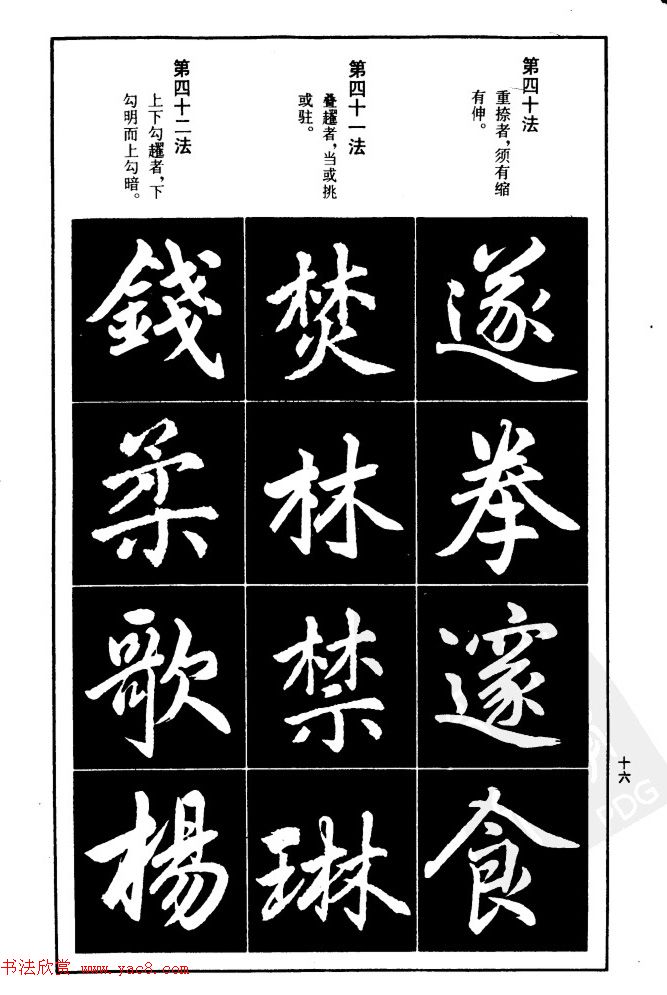 第四十法
重捺者，须有缩
有伸。
遂
拳
邃
食
第四十一法
叠趯者，当或挑
或驻。
焚
林
禁
琳
第四十二法
上下勾趯者，下
勾明而上勾暗。
錢
柔
歌
楊
十六
PDG
书法欣赏 www.yac8.com